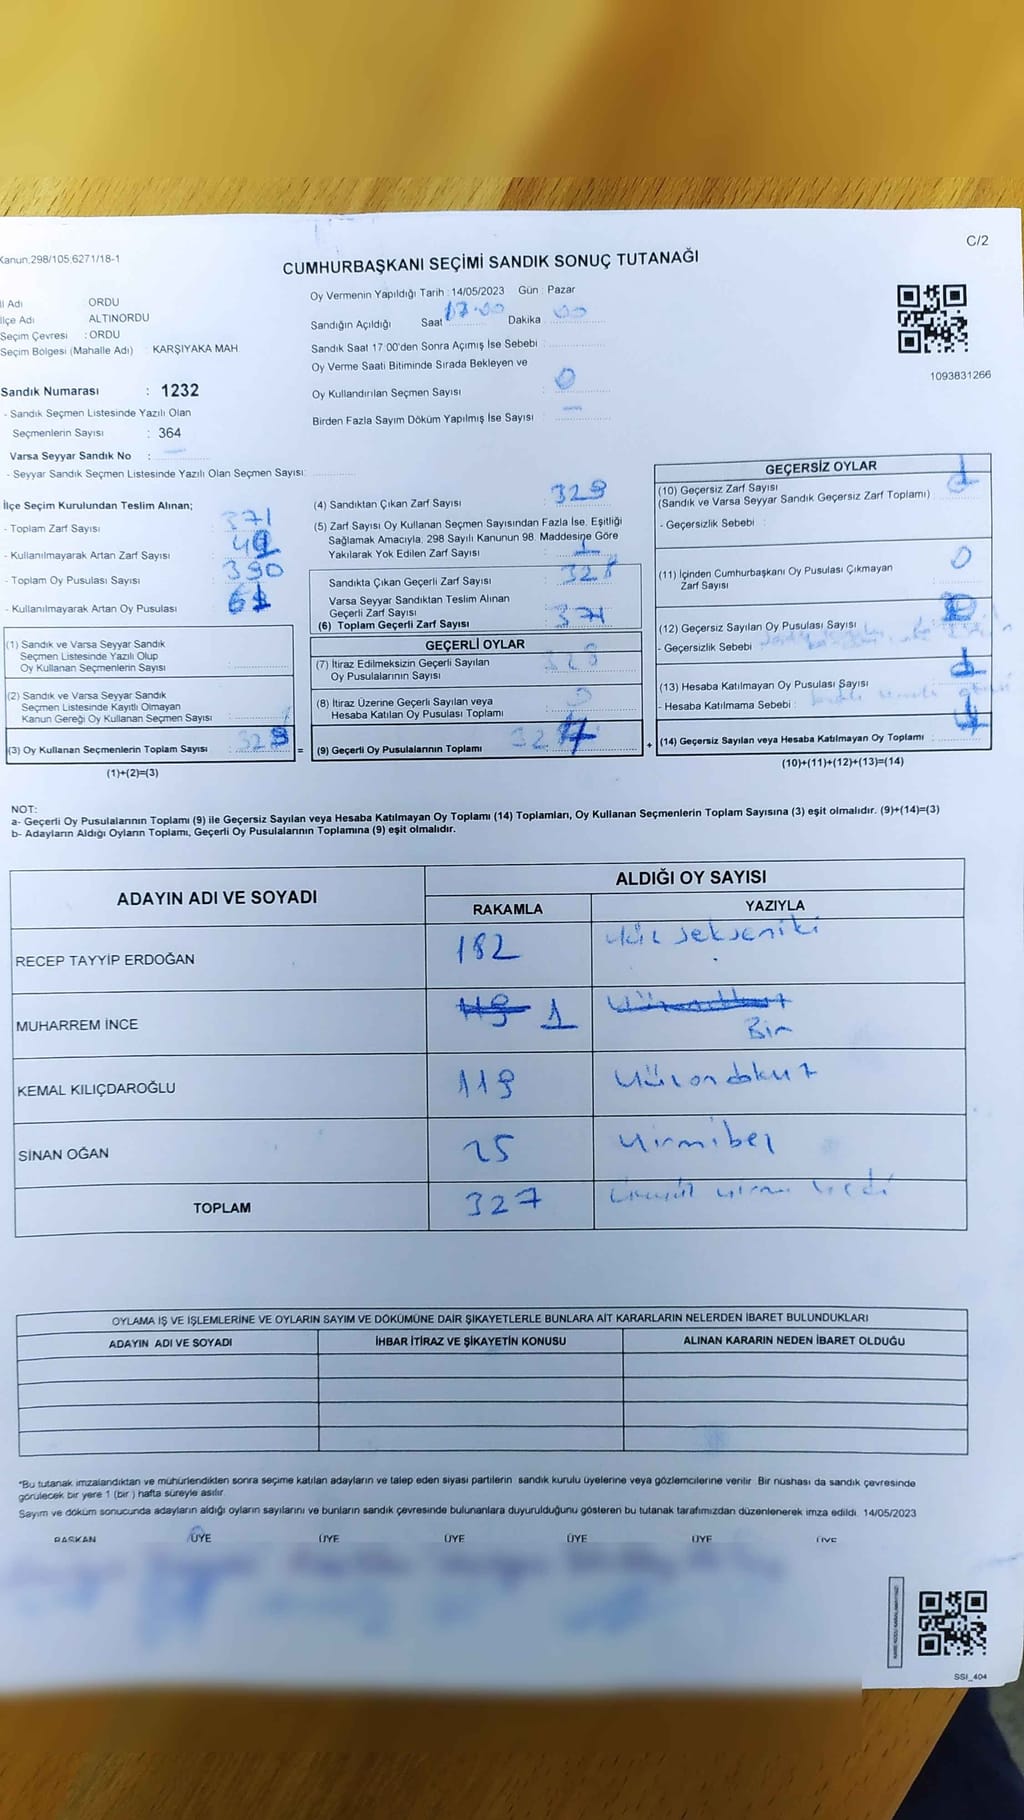 C/2
Kanun.298/105.6271/18-1
CUMHURBAŞKANI SEÇİMİ SANDIK SONUÇ TUTANAĞI
İl Adı ORDU
İlçe Adı ALTINORDU
Seçim Çevresi : ORDU
Seçim Bölgesi (Mahalle Adı) : KARŞIYAKA MAH.
Sandık Numarası : 1232
- Sandık Seçmen Listesinde Yazılı Olan
Seçmenlerin Sayısı : 364
Varsa Seyyar Sandık No :
- Seyyar Sandık Seçmen Listesinde Yazılı Olan Seçmen Sayısı:
Oy Vermenin Yapıldığı Tarih : 14/05/2023 Gün : Pazar
Sandığın Açıldığı Saat 17:00 Dakika 00
Sandık Saat 17:00'den Sonra Açımış İse Sebebi
Oy Verme Saati Bitiminde Sırada Bekleyen ve
Oy Kullandırılan Seçmen Sayısı : 0
Birden Fazla Sayım Döküm Yapılmış İse Sayısı : —
1093831266
İlçe Seçim Kurulundan Teslim Alınan;
- Toplam Zarf Sayısı : 371
- Kullanılmayarak Artan Zarf Sayısı
- Toplam Oy Pusulası Sayısı : 390
- Kullanılmayarak Artan Oy Pusulası
(1) Sandık ve Varsa Seyyar Sandık
Seçmen Listesinde Yazılı Olup
Oy Kullanan Seçmenlerin Sayısı
(2) Sandık ve Varsa Seyyar Sandık
Seçmen Listesinde Kayıtlı Olmayan
Kanun Gereği Oy Kullanan Seçmen Sayısı
(3) Oy Kullanan Seçmenlerin Toplam Sayısı :
(1)+(2)=(3)
(4) Sandıktan Çıkan Zarf Sayısı : 329
(5) Zarf Sayısı Oy Kullanan Seçmen Sayısından Fazla İse, Eşitliği
Sağlamak Amacıyla, 298 Sayılı Kanunun 98. Maddesine Göre
Yakılarak Yok Edilen Zarf Sayısı : 1
Sandıkta Çıkan Geçerli Zarf Sayısı : 328
Varsa Seyyar Sandıktan Teslim Alınan
Geçerli Zarf Sayısı
(6) Toplam Geçerli Zarf Sayısı : 371
GEÇERLİ OYLAR
(7) İtiraz Edilmeksizin Geçerli Sayılan
Oy Pusulalarının Sayısı : 328
(8) İtiraz Üzerine Geçerli Sayılan veya
Hesaba Katılan Oy Pusulası Toplamı
= (9) Geçerli Oy Pusulalarının Toplamı
GEÇERSİZ OYLAR
(10) Geçersiz Zarf Sayısı 1
(Sandık ve Varsa Seyyar Sandık Geçersiz Zarf Toplamı) :
- Geçersizlik Sebebi :
(11) İçinden Cumhurbaşkanı Oy Pusulası Çıkmayan
Zarf Sayısı : 0
(12) Geçersiz Sayılan Oy Pusulası Sayısı
- Geçersizlik Sebebi
(13) Hesaba Katılmayan Oy Pusulası Sayısı : 1
- Hesaba Katılmama Sebebi :
+ (14) Geçersiz Sayılan veya Hesaba Katılmayan Oy Toplamı :
(10)+(11)+(12)+(13)=(14)
NOT:
a- Geçerli Oy Pusulalarının Toplamı (9) ile Geçersiz Sayılan veya Hesaba Katılmayan Oy Toplamı (14) Toplamları, Oy Kullanan Seçmenlerin Toplam Sayısına (3) eşit olmalıdır. (9)+(14)=(3)
b- Adayların Aldığı Oyların Toplamı, Geçerli Oy Pusulalarının Toplamına (9) eşit olmalıdır.
ADAYIN ADI VE SOYADI ALDIĞI OY SAYISI
RAKAMLA YAZIYLA
RECEP TAYYİP ERDOĞAN 182 yüz sekseniki
MUHARREM İNCE 119 1 Bir
KEMAL KILIÇDAROĞLU 119 yüzondokuz
SİNAN OĞAN 25 yirmibeş
TOPLAM 327 üçyüz yirmi yedi
OYLAMA İŞ VE İŞLEMLERİNE VE OYLARIN SAYIM VE DÖKÜMÜNE DAİR ŞİKAYETLERLE BUNLARA AİT KARARLARIN NELERDEN İBARET BULUNDUKLARI
ADAYIN ADI VE SOYADI İHBAR İTİRAZ VE ŞİKAYETİN KONUSU ALINAN KARARIN NEDEN İBARET OLDUĞU
*Bu tutanak imzalandıktan ve mühürlendikten sonra seçime katılan adayların ve talep eden siyasi partilerin sandık kurulu üyelerine veya gözlemcilerine verilir. Bir nüshası da sandık çevresinde
görülecek bir yere 1 (bir ) hafta süreyle asılır.
Sayım ve döküm sonucunda adayların aldığı oyların sayılarını ve bunların sandık çevresinde bulunanlara duyurulduğunu gösteren bu tutanak tarafımızdan düzenlenerek imza edildi. 14/05/2023
BAŞKAN ÜYE ÜYE ÜYE ÜYE ÜYE ÜYE
SSI_404